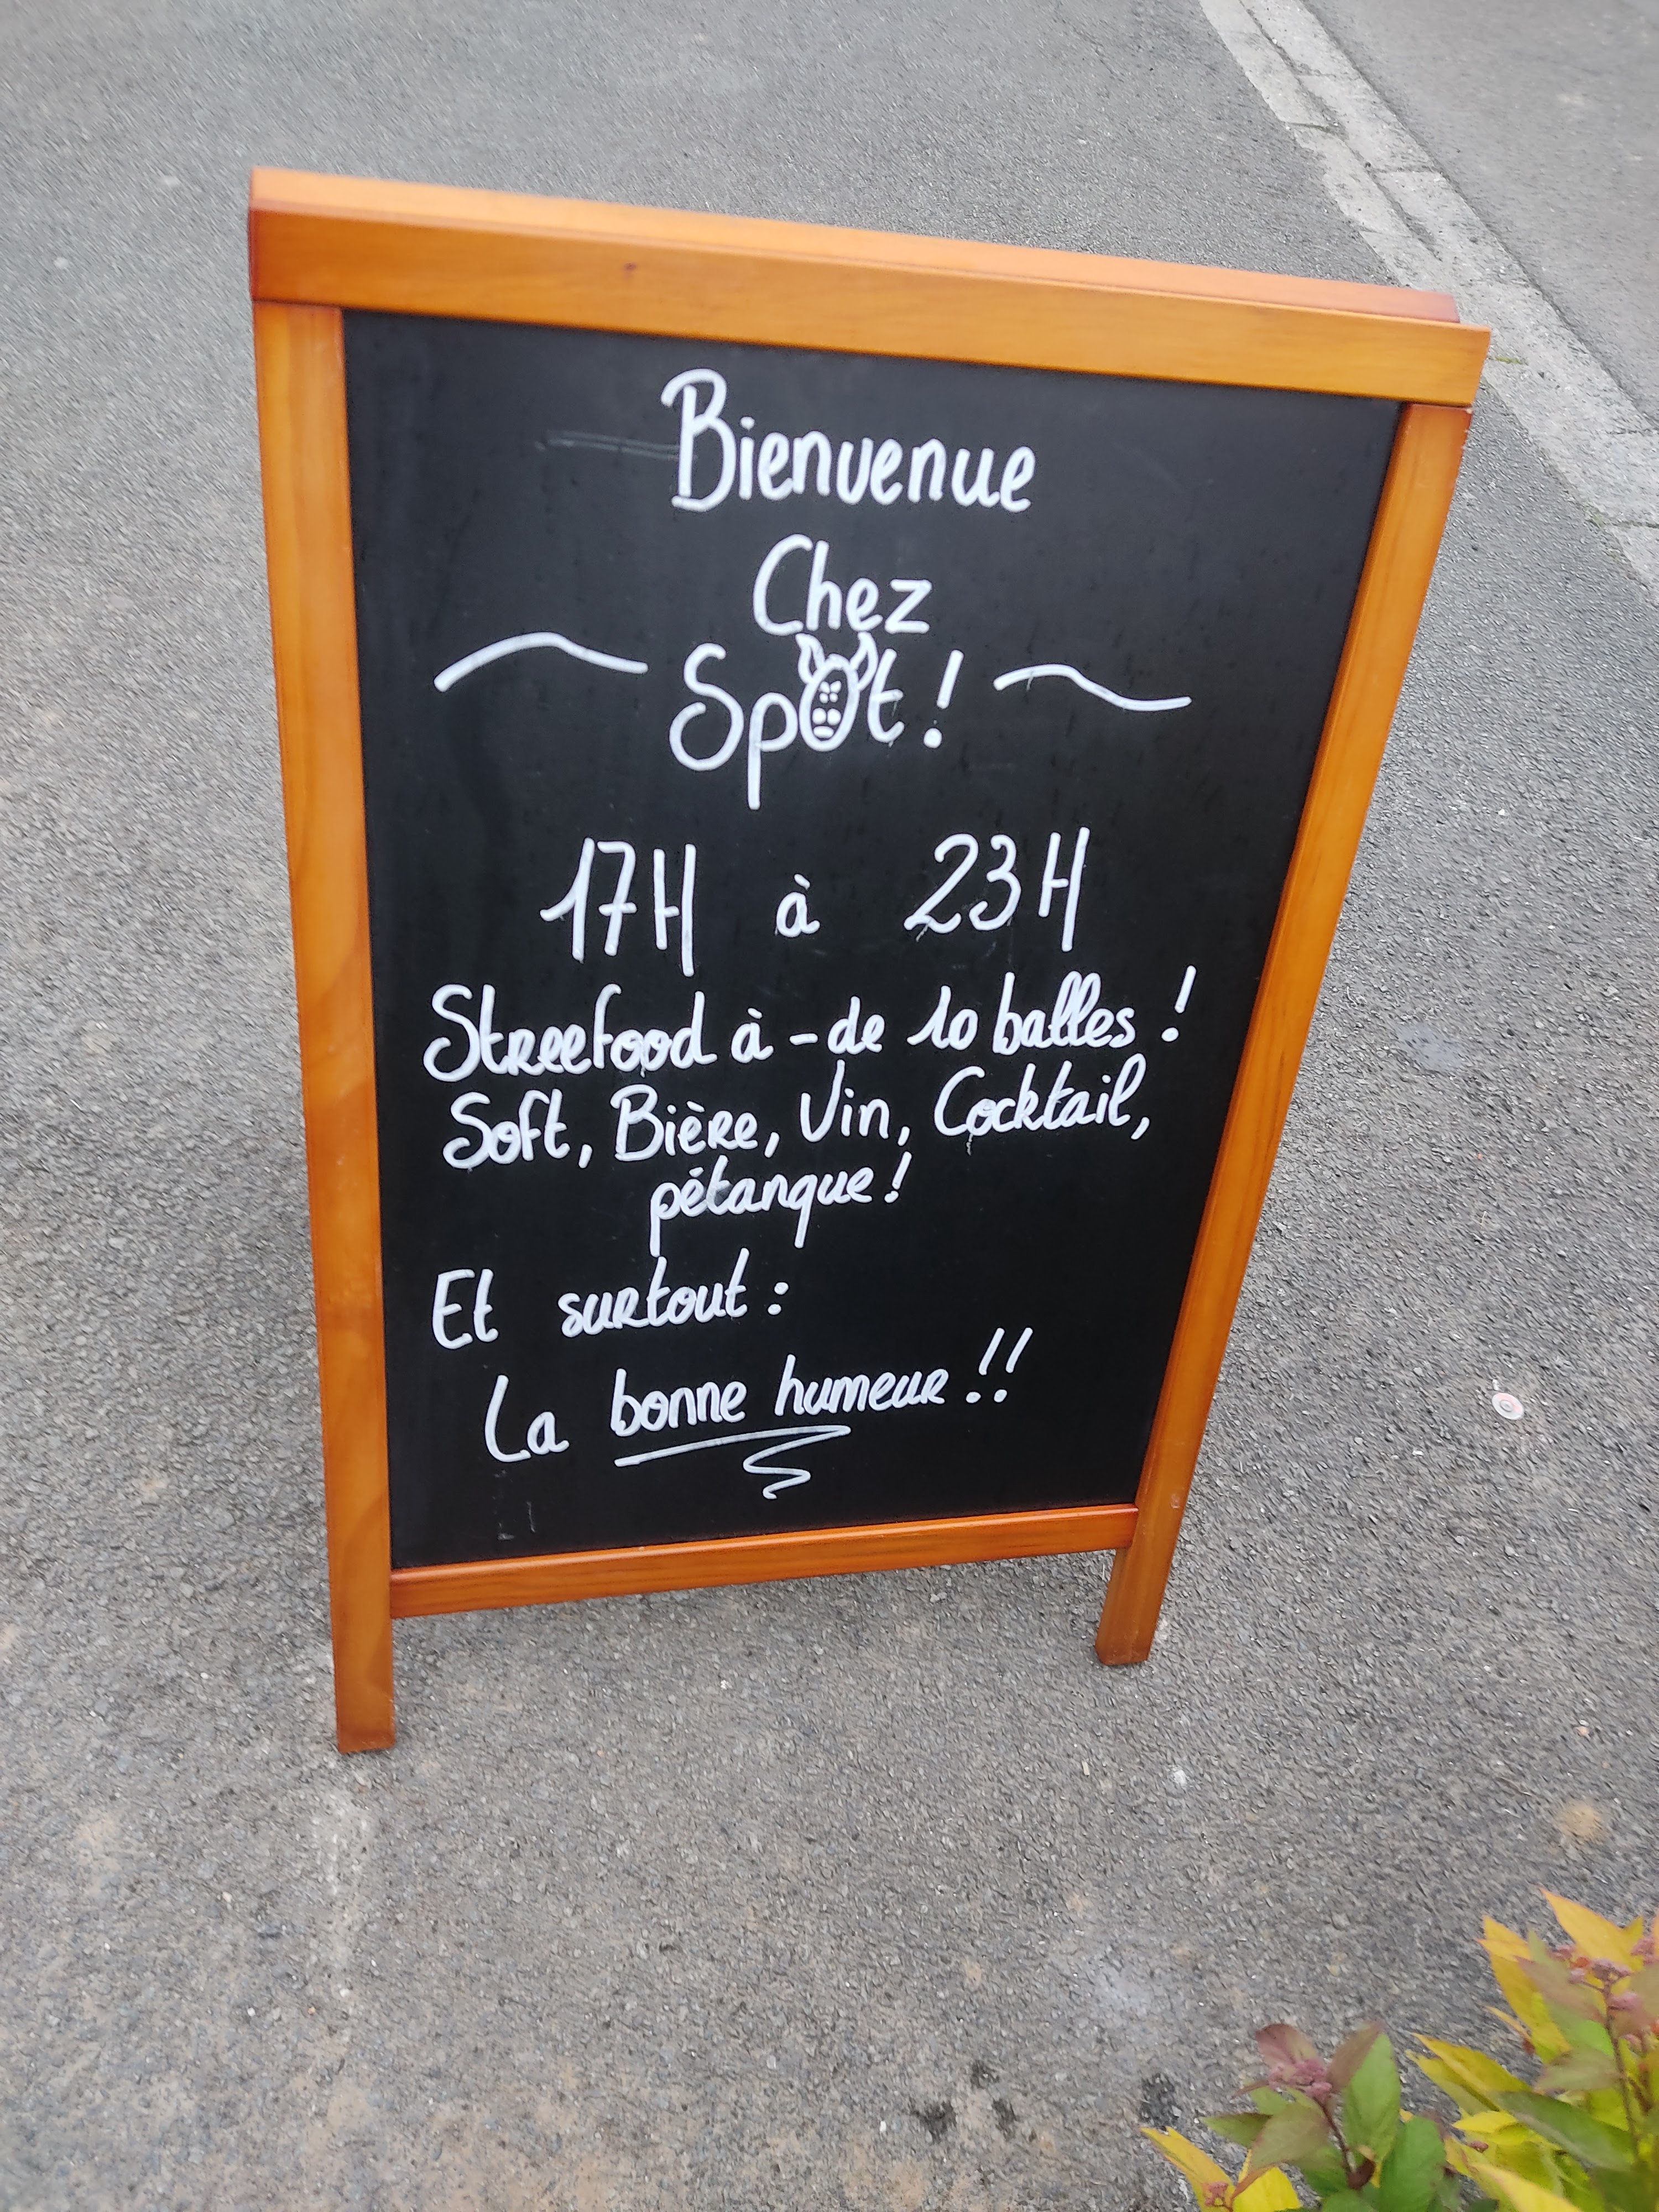 Bienvenue
Chez
Spot !
17H à 23H
Streefood à - de 10 balles !
Soft, Bière, Vin, Cocktail,
pétanque !
Et surtout :
La bonne humeur !!